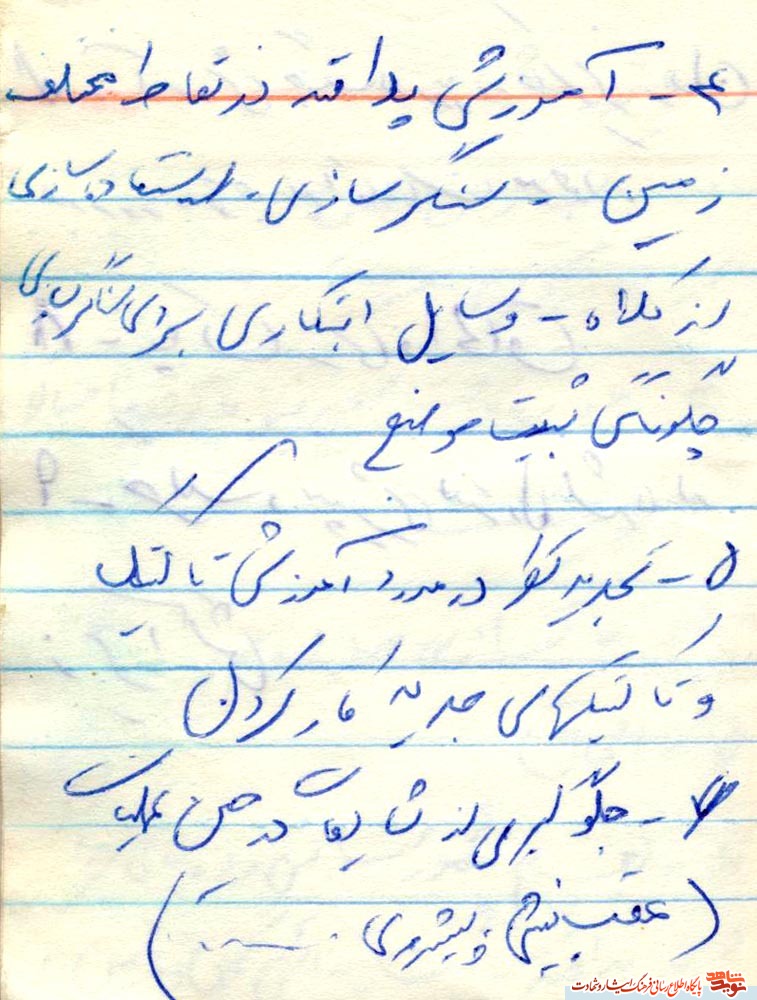 ۴- آموزش پدافند در نقاط مختلف
زمین - سنگرسازی - استفاده سازی
از کلاه - وسایل ابتکاری برای سنگربندی
چگونگی تثبیت موضع
۵- تجدید نظر در مورد آموزش تاکتیک
و تاکتیکهای جدید کار کردن
۶- جلوگیری از شایعات در حین عملیات
(عقب نشینی و پیشروی ......)
نوید شاهد پایگاه اطلاع رسانی فرهنگ ایثار و شهادت